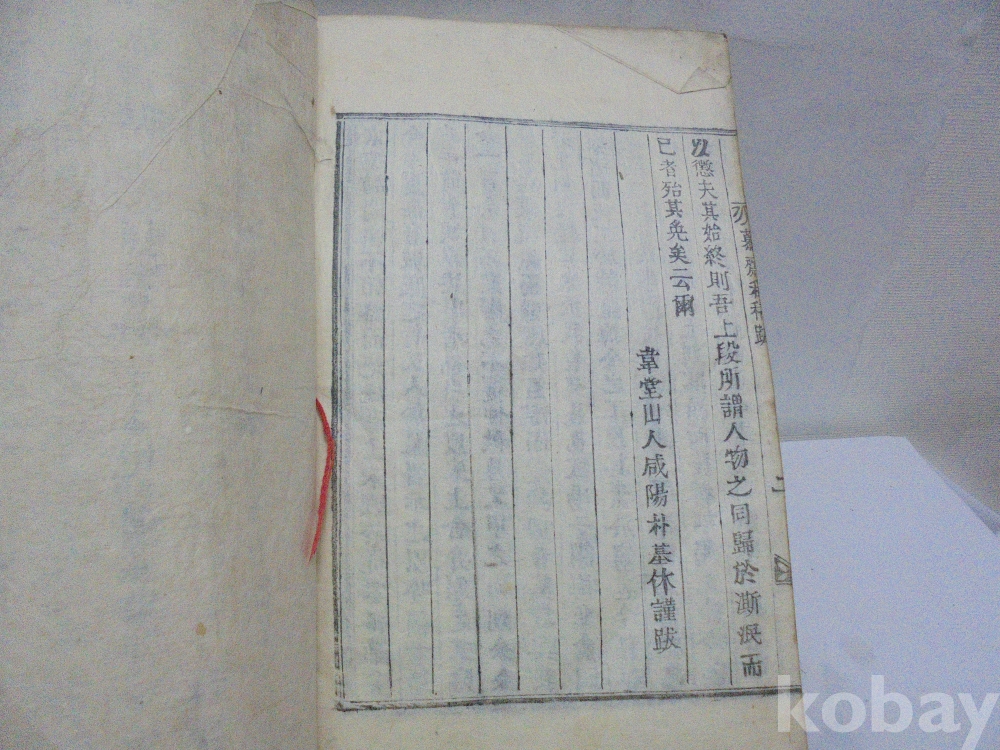 慕齋 跋
二
以懲夫其始終則吾上段所謂人物之同歸於澌泯而
已者殆其免矣云爾
韋堂山人咸陽朴基休謹跋
kobay